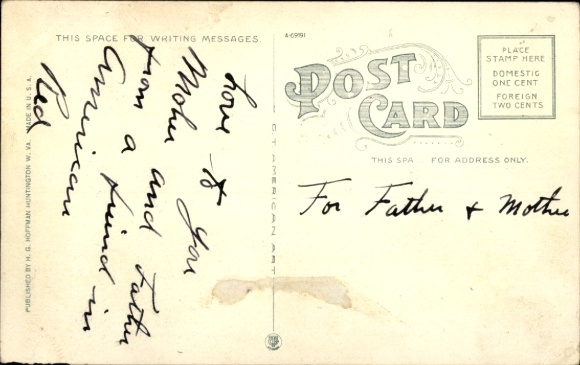 THIS SPACE FOR WRITING MESSAGES.
A-69191
POST CARD
PLACE
STAMP HERE
DOMESTIC
ONE CENT
FOREIGN
TWO CENTS
THIS SPA FOR ADDRESS ONLY.
For Father & Mother
Love to you
Mother and Father
from a friend in
American
Red
PUBLISHED BY H. G. HOFFMAN HUNTINGTON W. VA. MADE IN U. S. A.